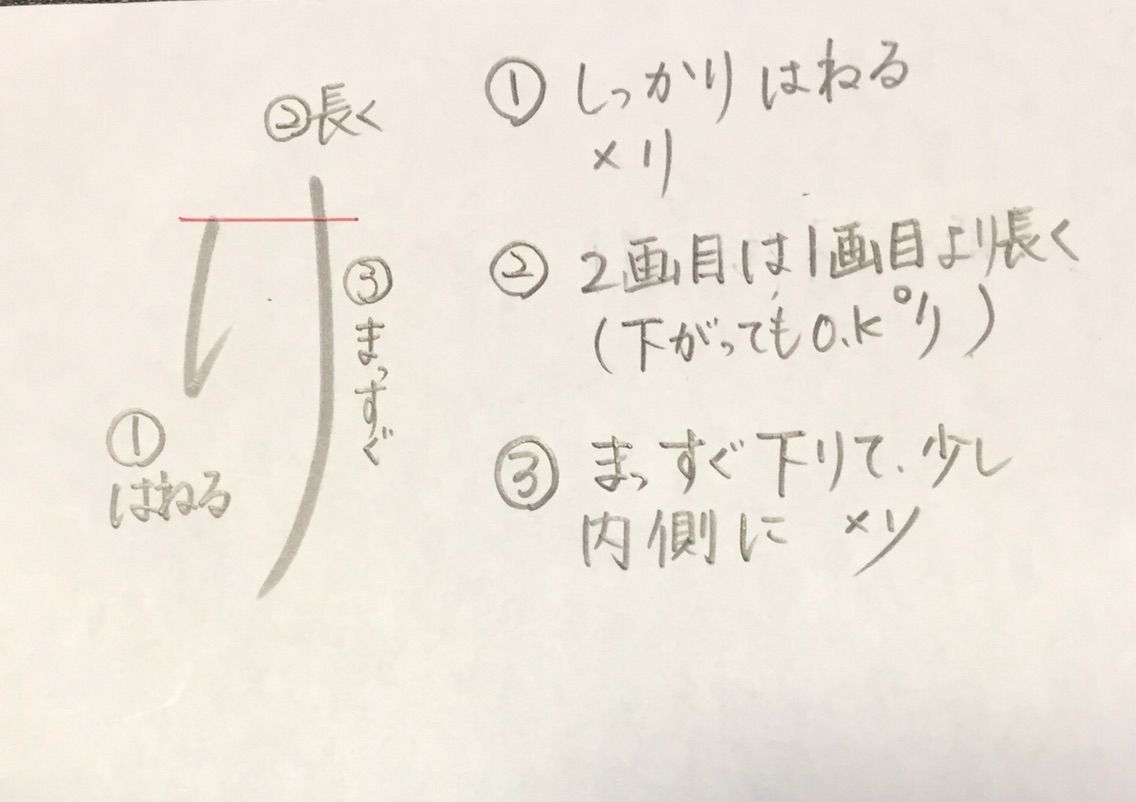 ②長く
り
③まっすぐ
①
はねる
① しっかりはねる
×リ
② 2画目は1画目より長く
(下がってもO.K°り)
③ まっすぐ下りて、少し
内側に ×ソ